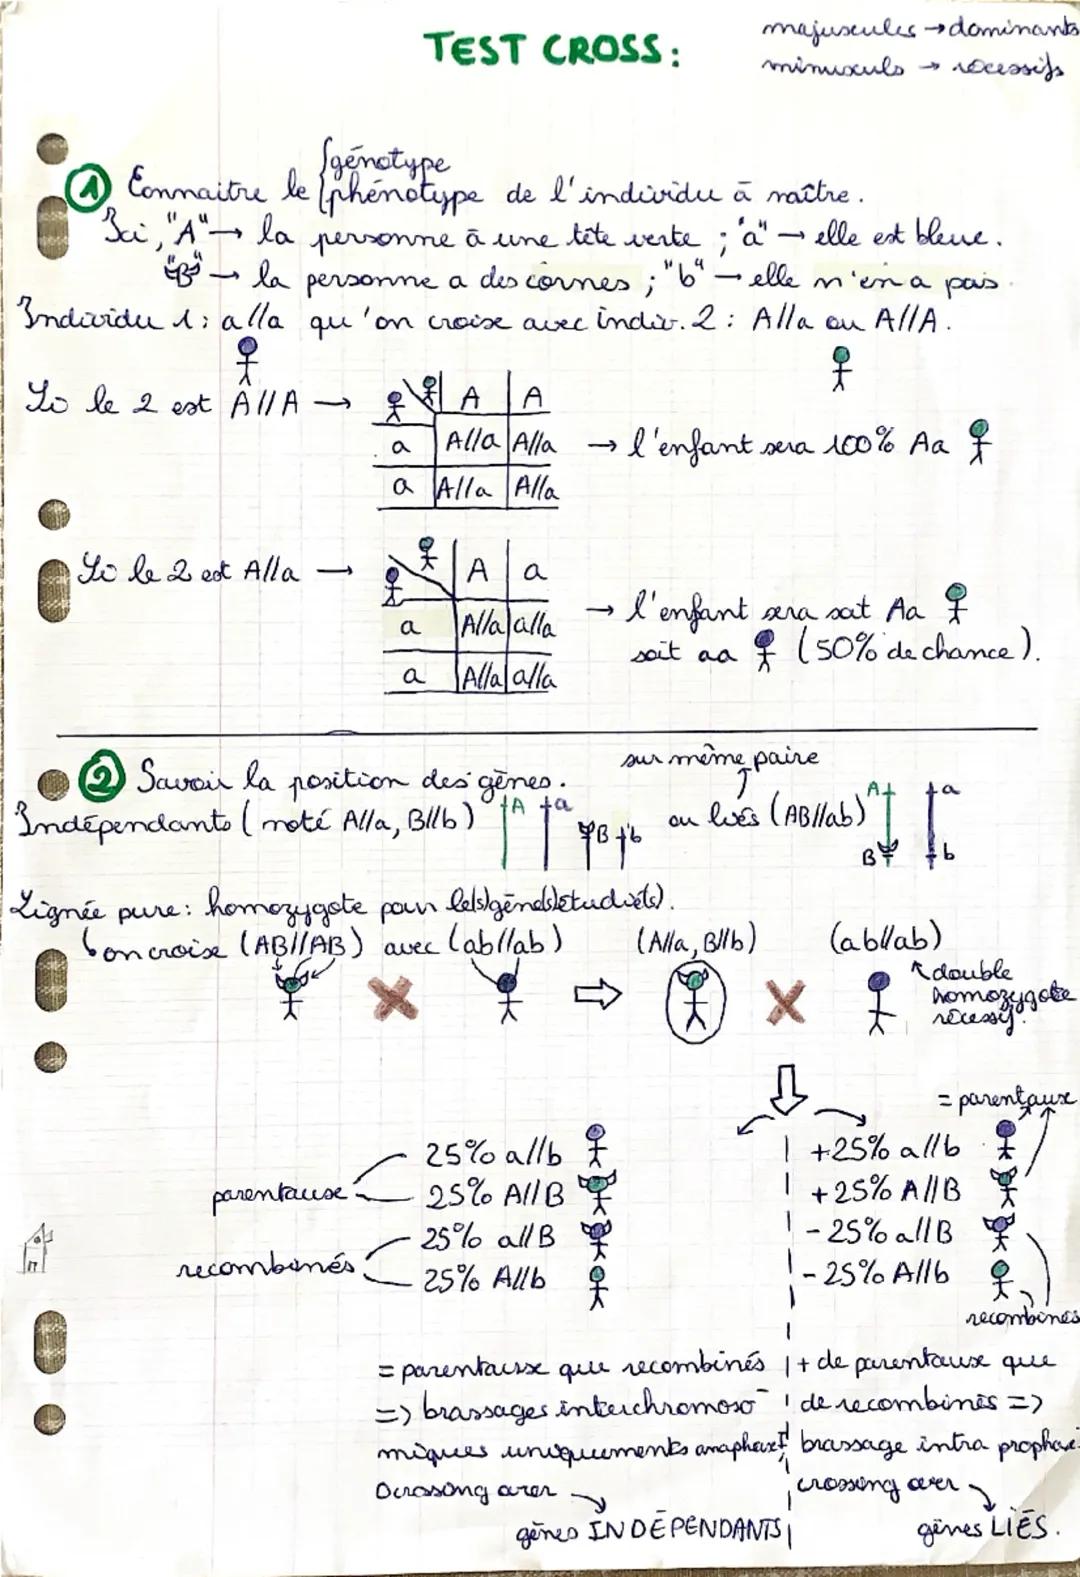 TEST CROSS:
majuscules → dominants
minuscules → récessifs
① Connaître le {génotype
phénotype de l'individu à naître.
Ici, "A" → la personne à une tête verte ; "a" → elle est bleue.
"B" → la personne a des cornes ; "b" → elle n'en a pas.
Individu 1 : a//a qu'on croise avec indiv. 2 : A//a ou A//A.
Si le 2 est A//A →
A A
a A//a A//a
a A//a A//a
→ l'enfant sera 100% Aa
Si le 2 est A//a →
A a
a A//a a//a
a A//a a//a
→ l'enfant sera soit Aa
soit aa (50% de chance).
② Savoir la position des gènes.
sur même paire
Indépendants (noté A//a, B//b) A a B b ou liés (AB//ab) A B a b
Lignée pure : homozygote pour le(s) gène(s) étudié(s).
on croise (AB//AB) avec (ab//ab) (A//a, B//b) (ab//ab)
double
homozygote
récessif.
= parentaux
25% a//b
25% A//B
25% a//B
25% A//b
parentaux
recombinés
+25% a//b
+25% A//B
-25% a//B
-25% A//b
recombinés
= parentaux que recombinés
=> brassages interchromoso-
miques uniquements anaphase I
0 crossing over
gènes INDÉPENDANTS
+ de parentaux que
de recombinés =>
brassage intra prophase
crossing over
gènes LIÉS.